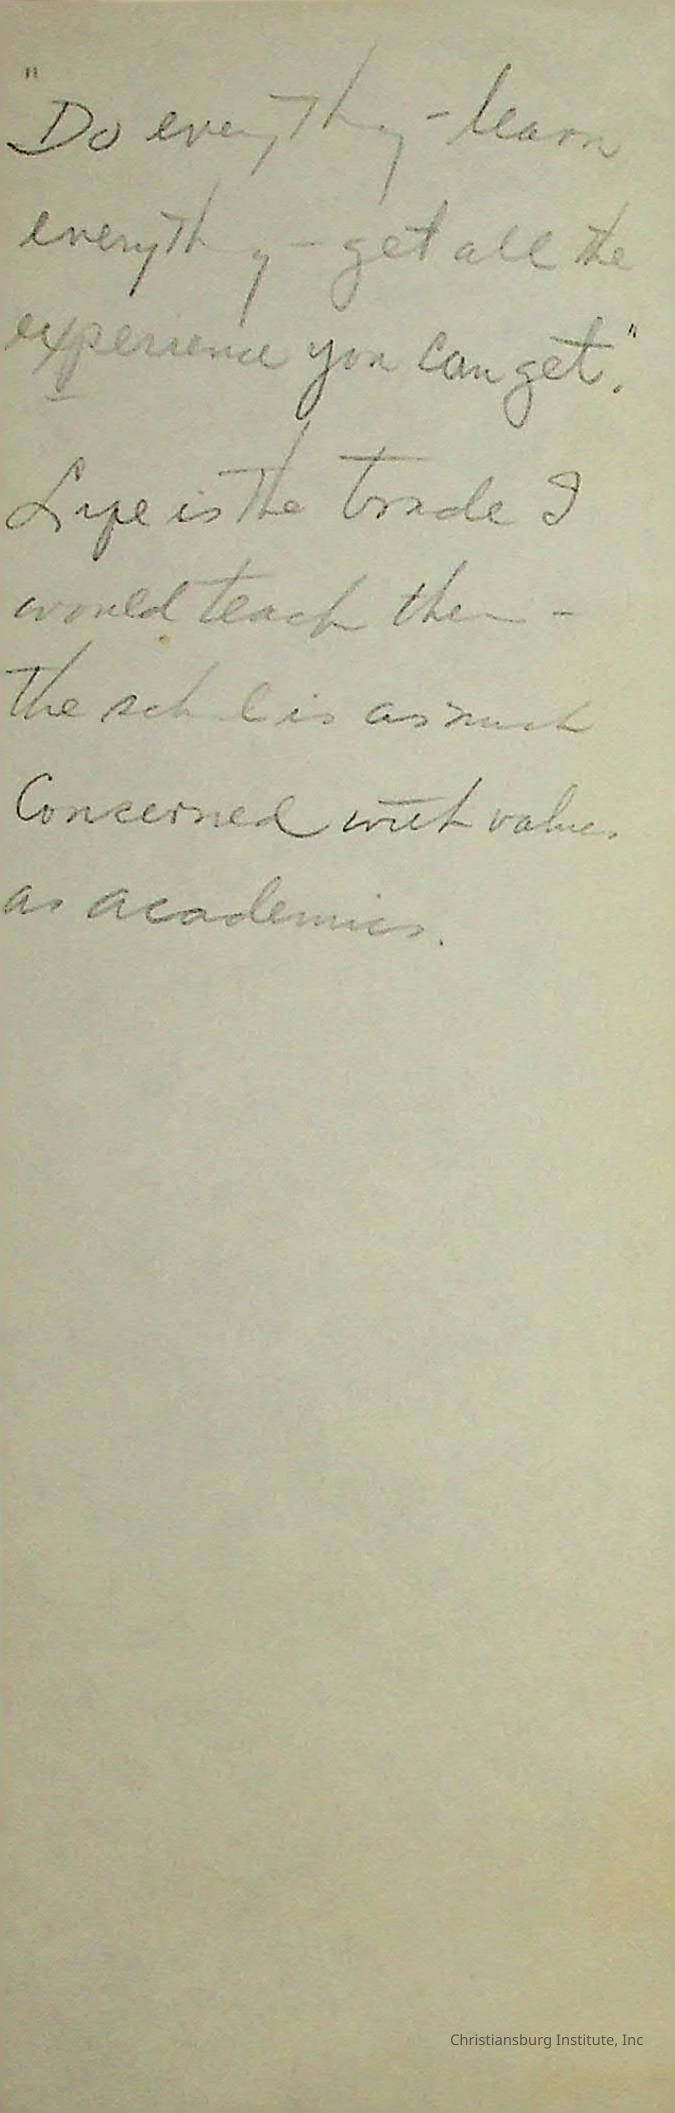 "Do everything - learn
everything - get all the
experience you can get."
Life is the trade I
would teach them -
The school is as much
Concerned with values
as academics.
Christiansburg Institute, Inc